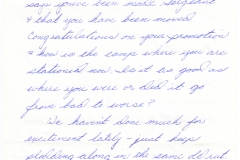 says you've been made Sergeant
& that you have been moved
Congratulations on your promotion
& how is the camp where you are
stationed now. Is it as good as
where you were or did it go
from bad to worse?
We havent done much for
excitement lately - just keep
plodding along in the same old rut